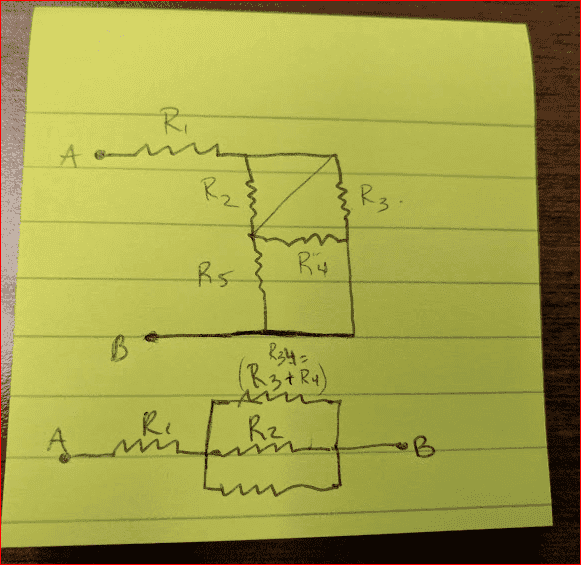 R1
A
R2
R3.
R4
R5
B
R34=
(R3+R4)
A R1 R2 B